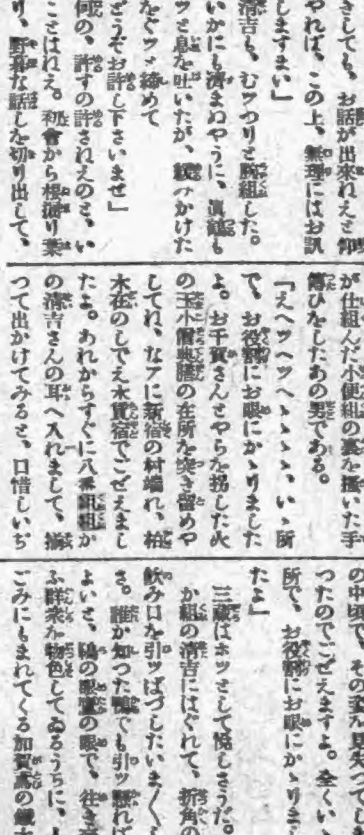 きしても、お話が出來れえと仰
やれば、この上、無理にはお訊
しますまい」
清吉も、むツつりと腕組した。
いかにも濟まぬやうに、眞鶴も
ツと息を吐いたが、緩みかけた
をぐツと締めて
どうぞお許し下さいませ」
何の、許すの許されえのと、い
ことはれえ。初會から根掘り葉
り、野暮な話しを切り出して、
が仕組んだ小便組の裏を掻いた手
傳ひをしたあの男である。
「えヘツヘツへゝゝゝゝ、いゝ所
で、お役割にお眼にかゝりました
よ。お千賀さんとやらを拐した火
の玉小僧の在所を突き留めや
してれ、なアに新宿の村端れ、柏
木在のしでえ木賃宿でごぜえまし
たよ。あれからすぐに八番組か
の清吉さんの耳へ入れまして、揃
つて出かけてみると、口惜しいぢ
の中頃で、その姿を見失つて
つたのでごぜえますよ。全くい
所で、お役割にお眼にかゝりま
たよ」
三藏はホツとして悦しさうだ。
か組の清吉にはぐれて、折角の
飮み口を引ツぱづしたいま〱
さ。誰か知つた鴨でも引ツ懸れば
よいさ、鵜の眼鷹の眼で、往き
ふ群衆を物色してゐるうちに、人
ごみにもまれてくる加賀鳶の鐵